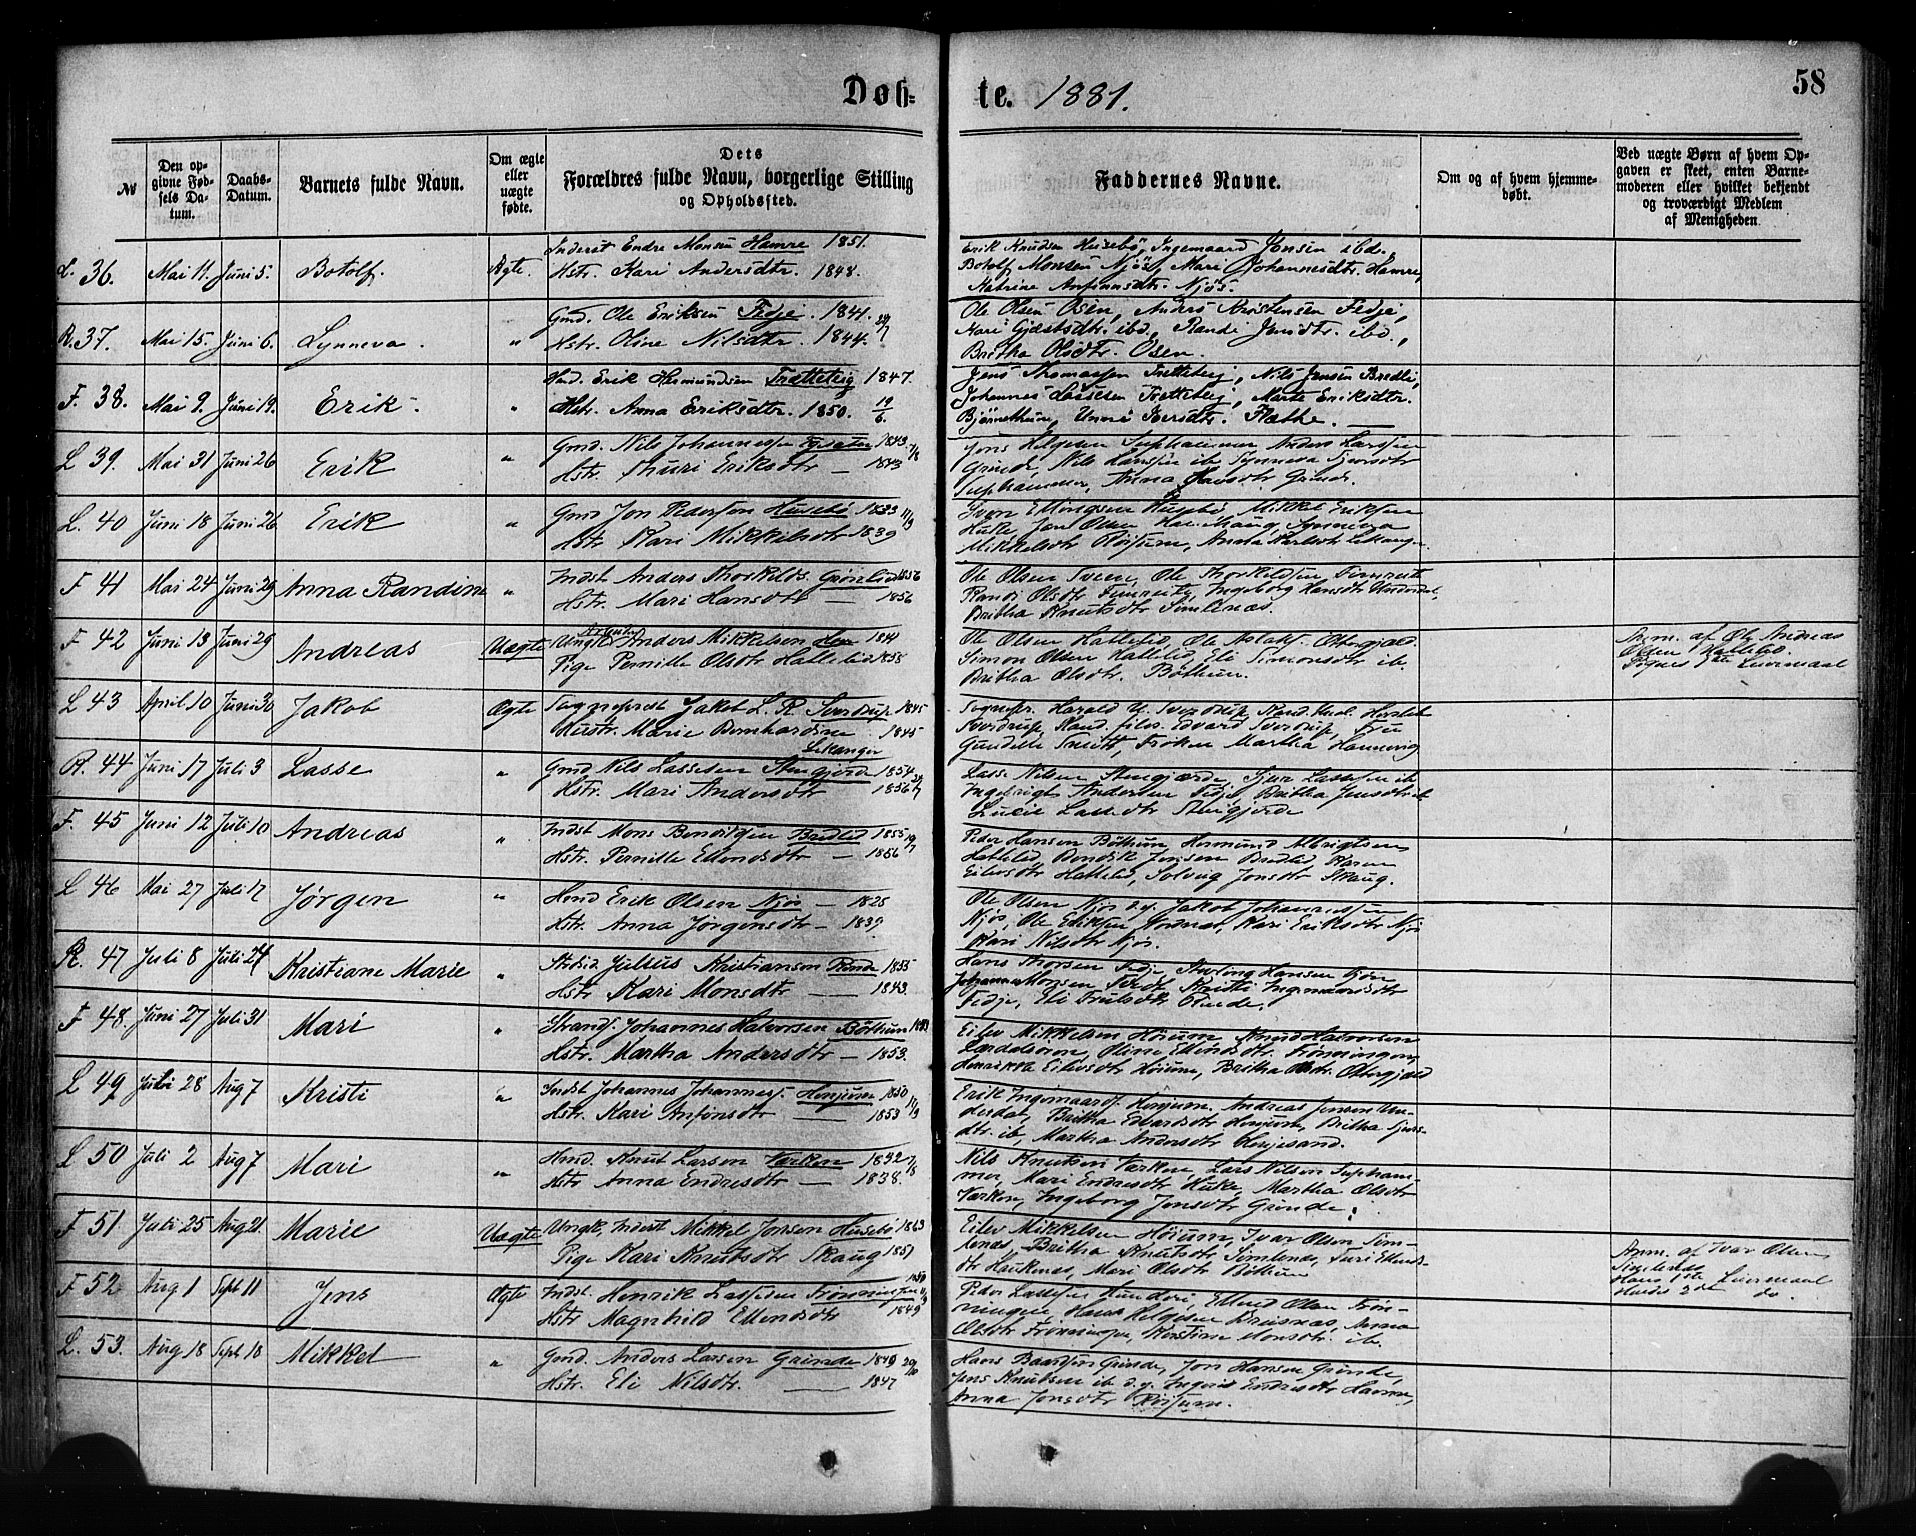 Døb-
te. 1881.
58
№
Den opgivne Fødsels Datum.
Daabs-Datum.
Barnets fulde Navn.
Om ægte eller uægte fødte.
Dets Forældres fulde Navn, borgerlige Stilling og Opholdssted.
Faddernes Navne.
Om og af hvem hjemmedøbt.
Ved uægte Børn af hvem Opgaven er skeet, enten Barnemoderen eller hvilket bekjendt og troværdigt Medlem af Menigheden.
L. 36. Mai 11. Juni 5. Botolf. Ægte. Inderst Endre Monsen Hamre 1851.
Hstr. Kari Andersdtr. 1848.
Erik Knudsen Husebø, Ingemaard Jonsen ibd.,
Botolf Monsen Njøs, Mari Johannesdtr. Hamre,
Katrine Anfinnsdtr. Njøs.
R. 37. Mai 15. Juni 6. Synneva. " Gmd. Ole Eriksen Fedje. 1841.
Hstr. Oline Nilsdtr. 1844.
Ole Olsen Osen, Anders Kristensen Fedje,
Kari Gjæstsdtr. ibd., Randi Jensdtr. ibd.,
Britha Olsdtr. Osen.
F. 38. Mai 9. Juni 19. Erik. " Hmd. Erik Hermundsen Trætteteig 1847.
Hstr. Anna Eriksdtr. 1850. 19/6.
Jens Thomassen Tretteteig, Nils Jensen Bredli,
Johannes Lassesen Tretteteig, Marte Eriksdtr.
Bjørnethun, Unni Sjursdtr. Flathe.
L 39. Mai 31 Juni 26 Erik " Gmd. Nils Johannessen 1843. 7/8
Hstr. Thuri Eriksdtr — 1843
Jons Helgesen Suphammer Anders Larssen
Grinde, Nils Hanssen ib Synneva Sjursdtr
Suphammer, Anna Hansdtr Grinde.
L. 40 Juni 18 Juni 26 Erik " Gmd Jon Pederson Husebø 1833 11/9
Hstr Kari Mikkelsdtr 1839
Iver Ellingsen Husebø, Mikkel Eriksen
Huke, Jon Olsen Haukhaug, Synneva
Mikkelsdtr Røisum, Anna Karlsdtr Leikanger.
F 41 Mai 24 Juni 29 Anna Randine " Indst Anders Thorkilds. Grønlid 1856
Hstr. Mari Hansdtr — 1856
Ole Olsen Tveen, Ole Thorkildsen Fimreite
Randi Olsdtr Fimreite, Ingeborg Hansdtr Underdal,
Britha Knutsdtr Simlenæs.
F 42 Juni 13 Juni 29 Andreas Uægte Ungk. Anders Mikkelsen 1841
Pige Pernille Olsdtr Hatlelid 1858
Ole Olsen Hatlelid, Ole Aslaks. Ottergjæld
Simon Olsen Hatlelid Eli Simonsdtr ib.
Britha Olsdtr. Bøthun.
Anm. af Ole Andreas
Olsen Hatlelid.
Pigens 1ste Leiermaal
L 43 April 10 Juni 30 Jakob Ægte Sogneprest Jakob L. R. Sverdrup 1845
Hustr. Marie Bernhardine 1845
Leikanger
Sognepr. Harald U. Sverdrup, Kand. theol. Hersleb
Sverdrup, Kand. filos. Edvard Sverdrup, Frue
Gundelle Smith, Frøken Martha Hannevig
R. 44 Juni 17 Juli 3 Lasse " Gmd Nils Lassesen Stengjerde 1854
Hstr. Mari Andersdtr 1856 24/7
Lasse Nilsen Stengjerde, Sjur Lassesen ib
Ingebrigt Andersen Fedje Britha Jensdtr ib
Lucie Lassedtr Stengjerde
F. 45 Juni 12 Juli 10 Andreas " Indst Mons Bendiksen Bredlid 1855 10/7
Hstr. Pernille Ellendsdtr — 1856
Peder Hansen Bøthun, Hermund Albrigtsen
Hatlelid, Bendik Jensen Bredlid, Karen
Eilevsdtr Hatlelid, Solvug Jonsdtr Skaug.
L 46 Mai 27 Juli 17 Jørgen " Hmd Erik Olsen Njøs — 1825
Hstr. Anna Jørgensdtr — 1839.
Ole Olsen Njøs d.y. Jakob Johannessen
Njøs, Ole Eriksen Nornæs, Kari Eriksdtr Njøs
Kari Nilsdtr Njøs.
R. 47 Juli 8 Juli 24 Kristiane Marie " Strdsid. Julius Kristiansen Rinde 1855
Hstr Kari Monsdtr — 1843.
Hans Thorsen Fedje, Sturling Hansen
Johannes Monsen Kristi Ingemaardsdtr
Fedje, Eli Rinde.
F 48. Juni 27 Juli 31 Mari " Strands. Johannes Halvorsen Bøthun 1853
Hstr. Martha Andersdtr — 1853.
Eilev Mikkelsen Hørum, Knud Halvorsen
Lærdalsøren, Oline Ellendsdtr. Frønningen,
Henrikka Eilevsdtr Hørum, Britha Olsdtr. Ottergjæld
L 49 Juni 28 Aug 7 Kristi " Indst Johannes Johannes. Henjum 1850 11/9
Hstr. Kari Anfinsdtr — 1853
Erik Ingemaards. Henjum, Andreas Jensen Underdal,
Britha Edvardsdtr Henjum, Britha Sjursdtr.
ib, Martha Andersdtr Henjesand.
L 50 Juli 2 Aug 7 Mari " Hmd. Knut Larsen Varken 1832 7/8
Hstr Anna Endresdtr — 1838.
Nils Knutsen Varken, Lars Nilsen Suphammer,
Mari Endresdtr Huke, Martha Olsdtr
Varken, Ingeborg Jonsdtr Grinde.
F 51 Juli 25 Aug 21. Marie Uægte Ungk. Inderst Mikkel Jonsen Husebø 1863
Pige Kari Knutsdtr Skaug 1851
Eilev Mikkelsen Hørum, Ivar Olsen Simlenæs,
Britha Knutsdtr Simlenæs, Turi Ellendsdtr
Haukenæs, Mari Olsdtr Bøthun
Anm. af Ivar Olsen
Simlenæs
Hans 1ste Leiermaal
Hendes 2det do.
F 52 Aug 1 Sept 11 Jens Ægte Indst. Henrik Lassesen Frønningen 1850 11/9
Hstr Magnhild Ellendsdtr 1849
Peder Lassesen Hunderi, Ellend Olsen Frønningen
Hans Helgesen Brusnæs, Anna
Olsdtr Frønningen, Kirstine Monsdtr. ib.
L. 53. Aug 18 Sept 18 Mikkel " Gmd. Anders Larsen Grinde 1849 29/10
Hstr. Eli Nilsdtr. — 1847
Hans Baardsen Grinde, Jon Hansen Grinde,
Jens Knutsen ib d.y. Ingrid Endresdtr Hamre,
Anna Jonsdtr Røisum.